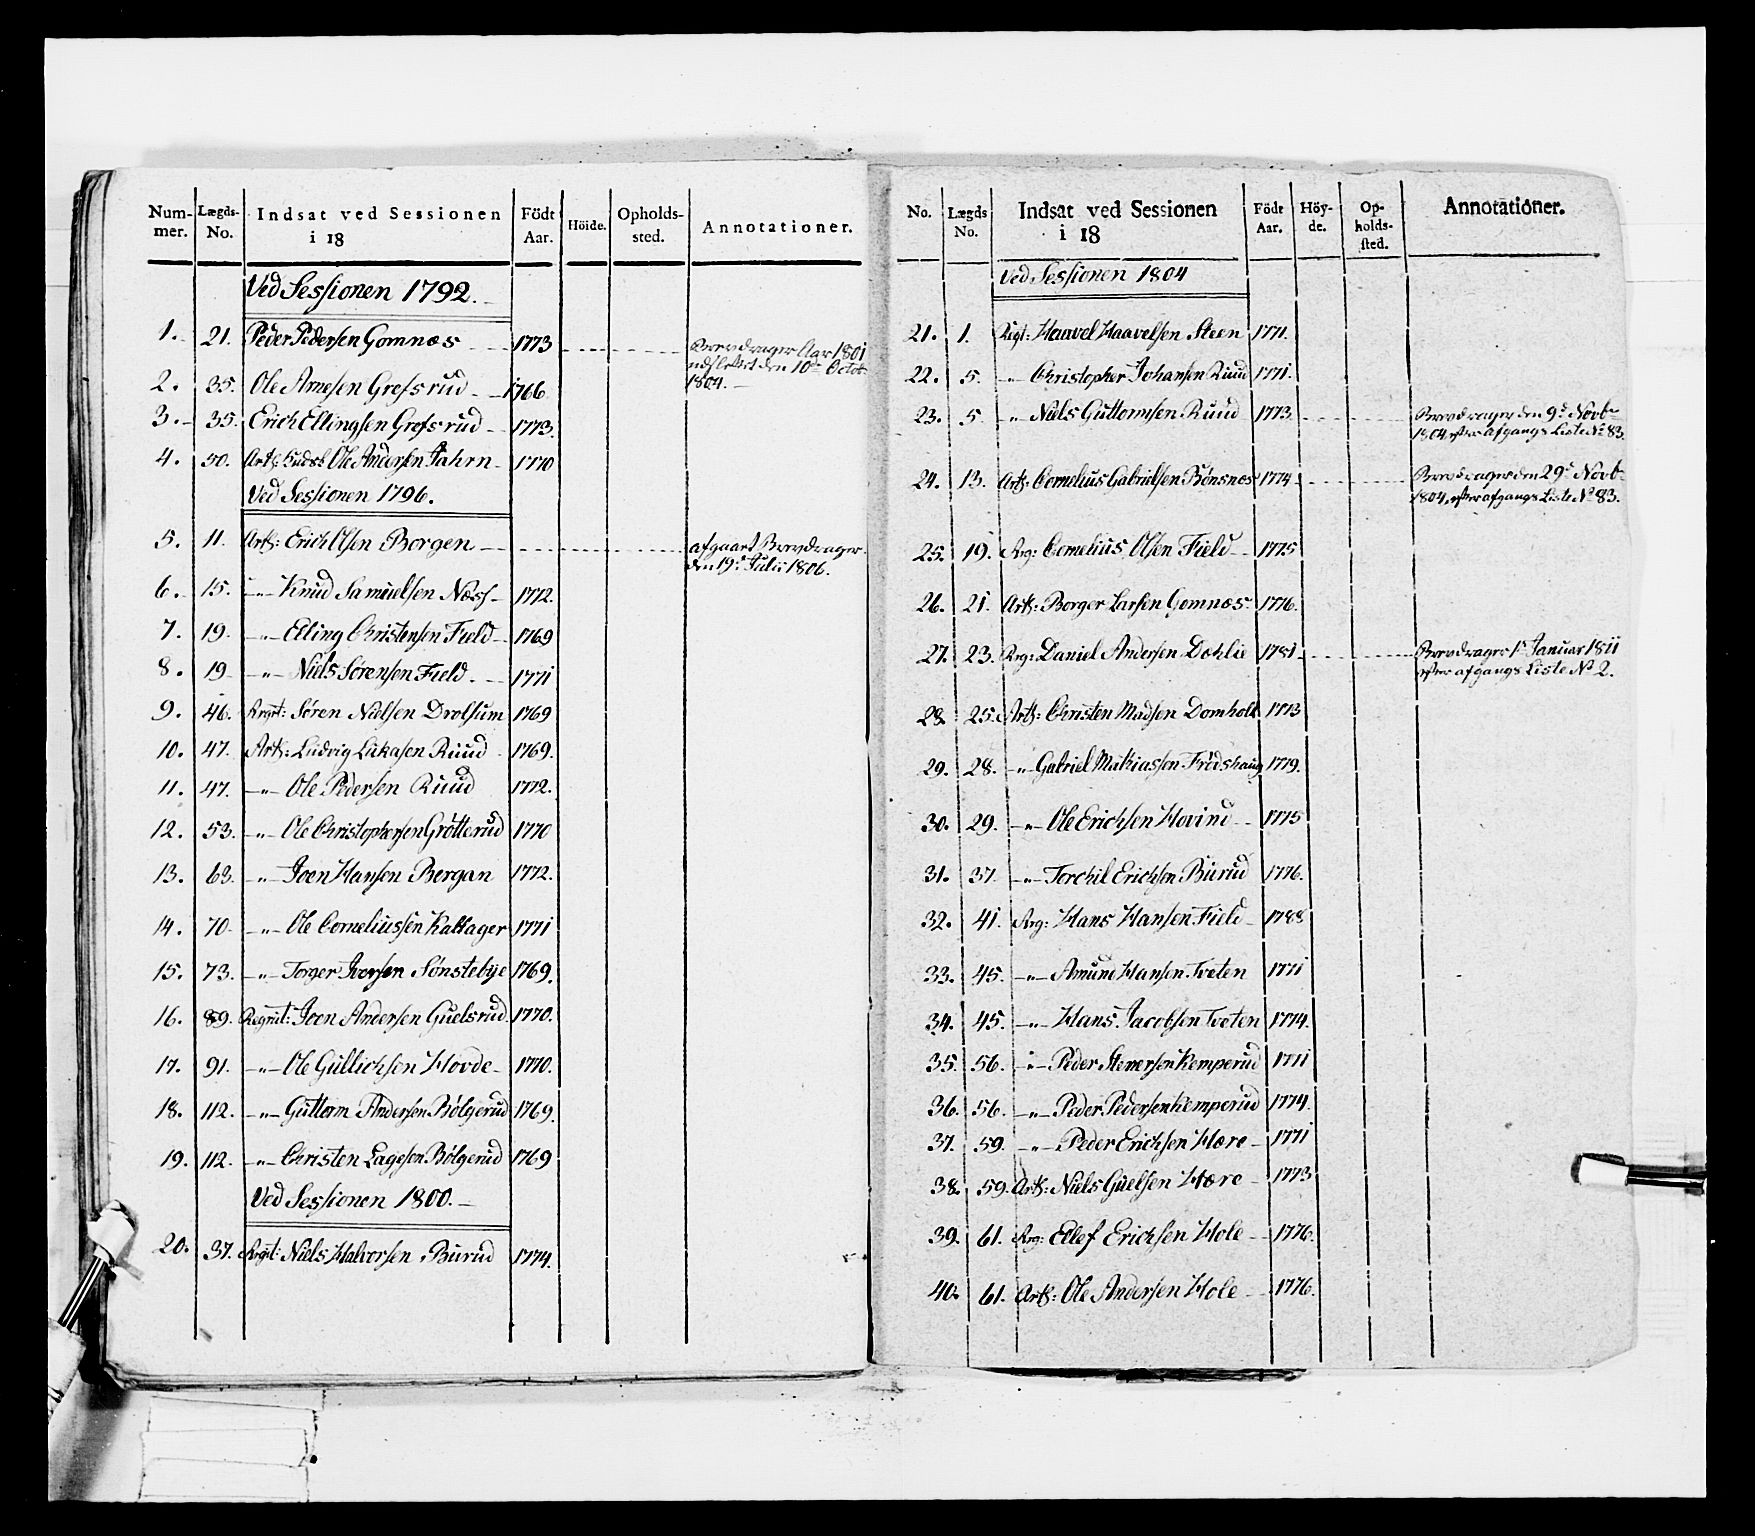 Num- mer. Lægds- No. Indsat ved Sessionen i 18 Födt Aar. Höide. Opholds- sted. Annotationer.
Ved Sessionen 1792.
1. 21. Peder Pedersen Gomnæs 1773 Brevdrager Aar 1801
udslettet den 10de Octob:
1804.
2. 35. Ole Arnesen Grefsrud 1766
3. 35. Erich Ellingsen Grefsrud 1773.
4. 50. Art: Ole Andersen Jahrn 1770
Ved Sessionen 1796.
5. 11. Art: Erich Olsen Borgen afgaaet Brevdrager
den 19d Julii 1806.
6. 15. -"- Knud Samuelsen Næss 1772.
7. 19. -"- Elling Christensen Field 1769
8. 19 -"- Niels Sörensen Field 1771
9. 46. Rgnt: Søren Nielsen Drolsum 1769
10. 47. Art: Ludvig Lukasen Ruud 1769.
11. 47. -"- Ole Pedersen Ruud 1772.
12. 53. -"- Ole Christophersen Grøtterud 1770
13. 63. -"- Joen Hansen Bergan 1772.
14. 70 -"- Ole Corneliussen Kattager 1771
15. 73. -"- Torger Iversen Sønstebye 1769.
16. 89. Regnt: Joen Andersen Guelsrud 1770.
17. 91. -"- Ole Gullichsen Hovde 1770.
18. 112. -"- Guttorm Andersen Bølgerud 1769.
19. 112. -"- Christen Lagesen Bølgerud 1769
Ved Sessionen 1800.
20. 37. Rgnt: Niels Halvorsen Burud 1774.
No. Lægds No. Indsat ved Sessionen i 18 Födt Aar. Höy- de. Op- holds- sted. Annotationer.
Ved Sessionen 1804
21. 1. Rgt: Haavel Haavelsen Steen 1771.
22. 5. -"- Christopher Johansen Ruud 1771.
23. 5. " Niels Guttormsen Ruud 1773. Brevdrager den 9d Novbr
1804, efter afgangs Liste No 83.
24. 13. Art: Cornelius Gabrielsen Bönsnæs 1774. Brevdrager den 29d Novb:
1804, efter afgangs Liste No 83.
25. 19. Rg: Cornelius Olsen Field 1775
26. 21. Art: Borger Larsen Gomnæs 1776.
27. 23. Rg: Daniel Andersen Dæhlie 1781 Brevdrager 1d Januar 1811
efter afgangs Liste No 2.
28. 25. Art: Christen Madsen Domholt 1773
29. 28. -"- Gabriel Mathiassen Frödshaug 1779.
30. 29. -"- Ole Erichsen Hovind 1775
31. 37. -"- Torchil Erichsen Burud 1776.
32. 41. Rg: Hans Hansen Field 1788
33. 45. -"- Amund Hansen Tveten 1771
34. 45. -"- Hans Jacobsen Tveten 1774.
35. 56. -"- Peder Stenersen Kemperud 1771
36. 56. -"- Peder Pedersen Kemperud 1774.
37. 59. -"- Peder Erichsen Hære 1771
38. 59. Art: Niels Guelsen Hære 1773
39. 61. Rg: Ellef Erichsen Hole 1776.
40. 61. Art: Ole Andersen Hole 1776.